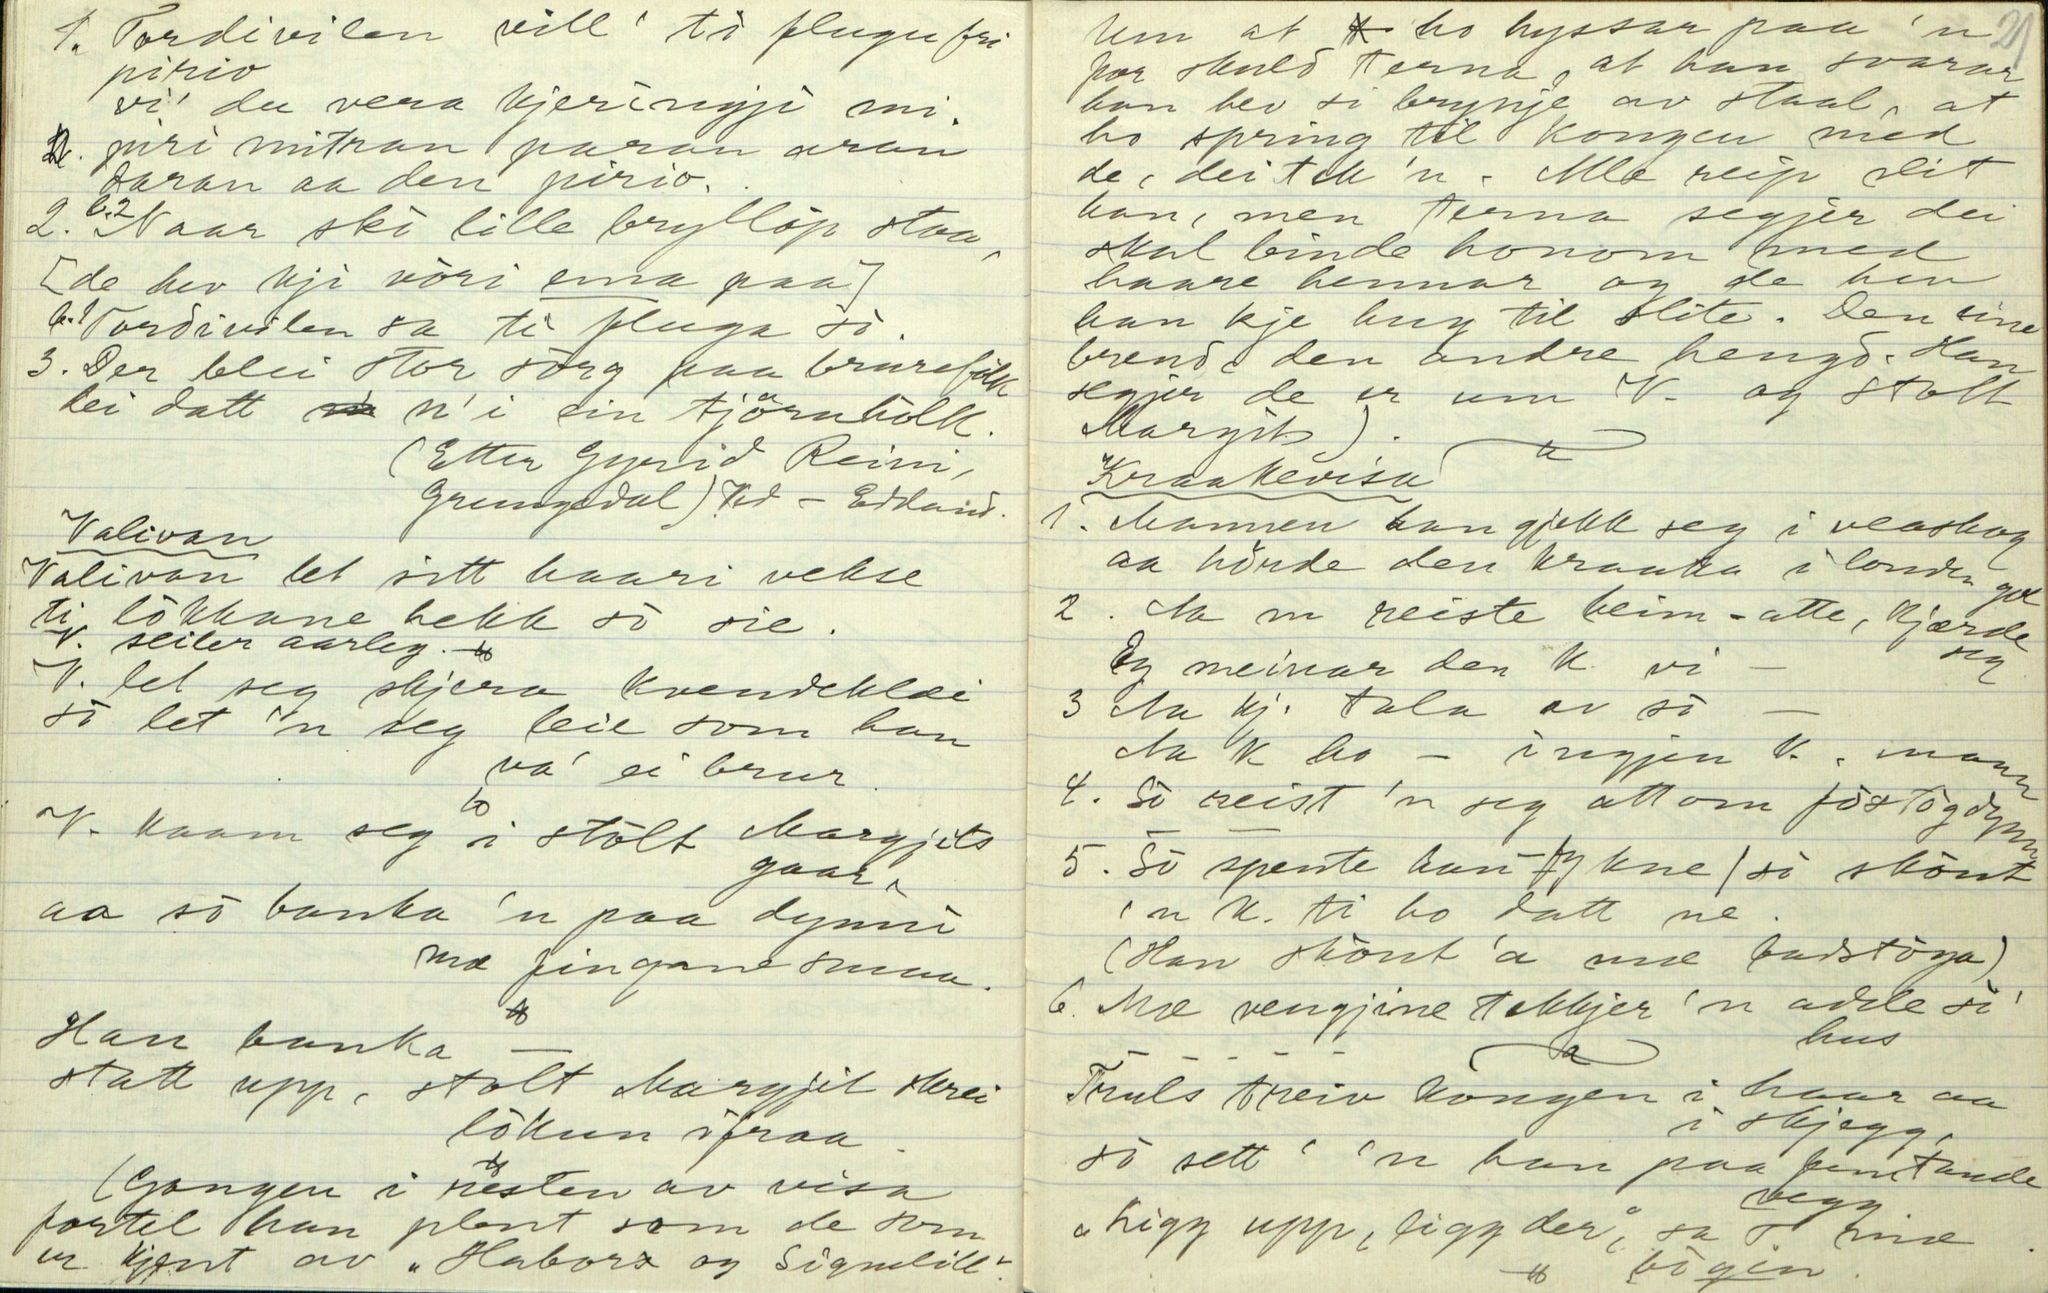 1. Tordivilen vill' ti flugu fri
pirio
vi' du vera kjeringji mi.
piri mitran paran aran
saran aa den pirio.
2. b.2 Naar ski lille bryllöp staa,
[de hev kji vöri ema paa]
b.1 Tordivilen sa ti fluga sö.
3. Der blei stor sörg paa brurefölk
dei datt n' i ein tjörnhölk.
(Etter Gyrid Reini,
Grungedal) Kd – Edland.
Valivan
Valivan let sitt haari vekse
ti lökkane hekk sö sie.
V. seiler aarleg.
V. let seg skjera kvendeklæi
sö let 'n seg leie som han
va' ei brur.
V. kaam seg i stölt Margjits
gaar,
aa sö banka 'n paa dynni
mæ fingane smaa.
Han banka —
statt upp, stolt Margjit skrei
lökun ifraa.
(Gongen i resten av visa
fortel han plent som de som
er kjent av „Habor og Signelill".
21
Um at ho kyssar paa 'n
for skuld terna, at han svarar
han hev si brynje av staal, at
ho spring til kongen med
de, dei tek 'n. Alle reip slit
han, men terna segjer dei
skal binde honom med
haare hennar og de hev
han kje hug til slite. Den eine
brend, den andre hengd. Han
segjer de er um V. og stolt
Margit).
Kraakevisa
1. Mannen han gjekk seg i veaskog
aa hörde den kraaka i londen gol
2. Aa m reiste heim-atte, kjærde
seg
Eg meinar den K. vi —
3 Aa kj. tala av sö —
Aa K ho – ingjen K. mann
4. Sö reist 'n seg attom föstögdynn
5. Sö spente han – kne / sö skönt
'n K. ti ho datt ne.
(Han skönt 'a mæ badstöga)
6. Mæ vengjine tekkjer 'n adde si'
hus
— — — — —
Truls treiv kongen i haar aa
i skjegg,
sö sett' 'n han paa femtande
vegg
„Ligg upp, ligg der", sa T mæ
bögin.